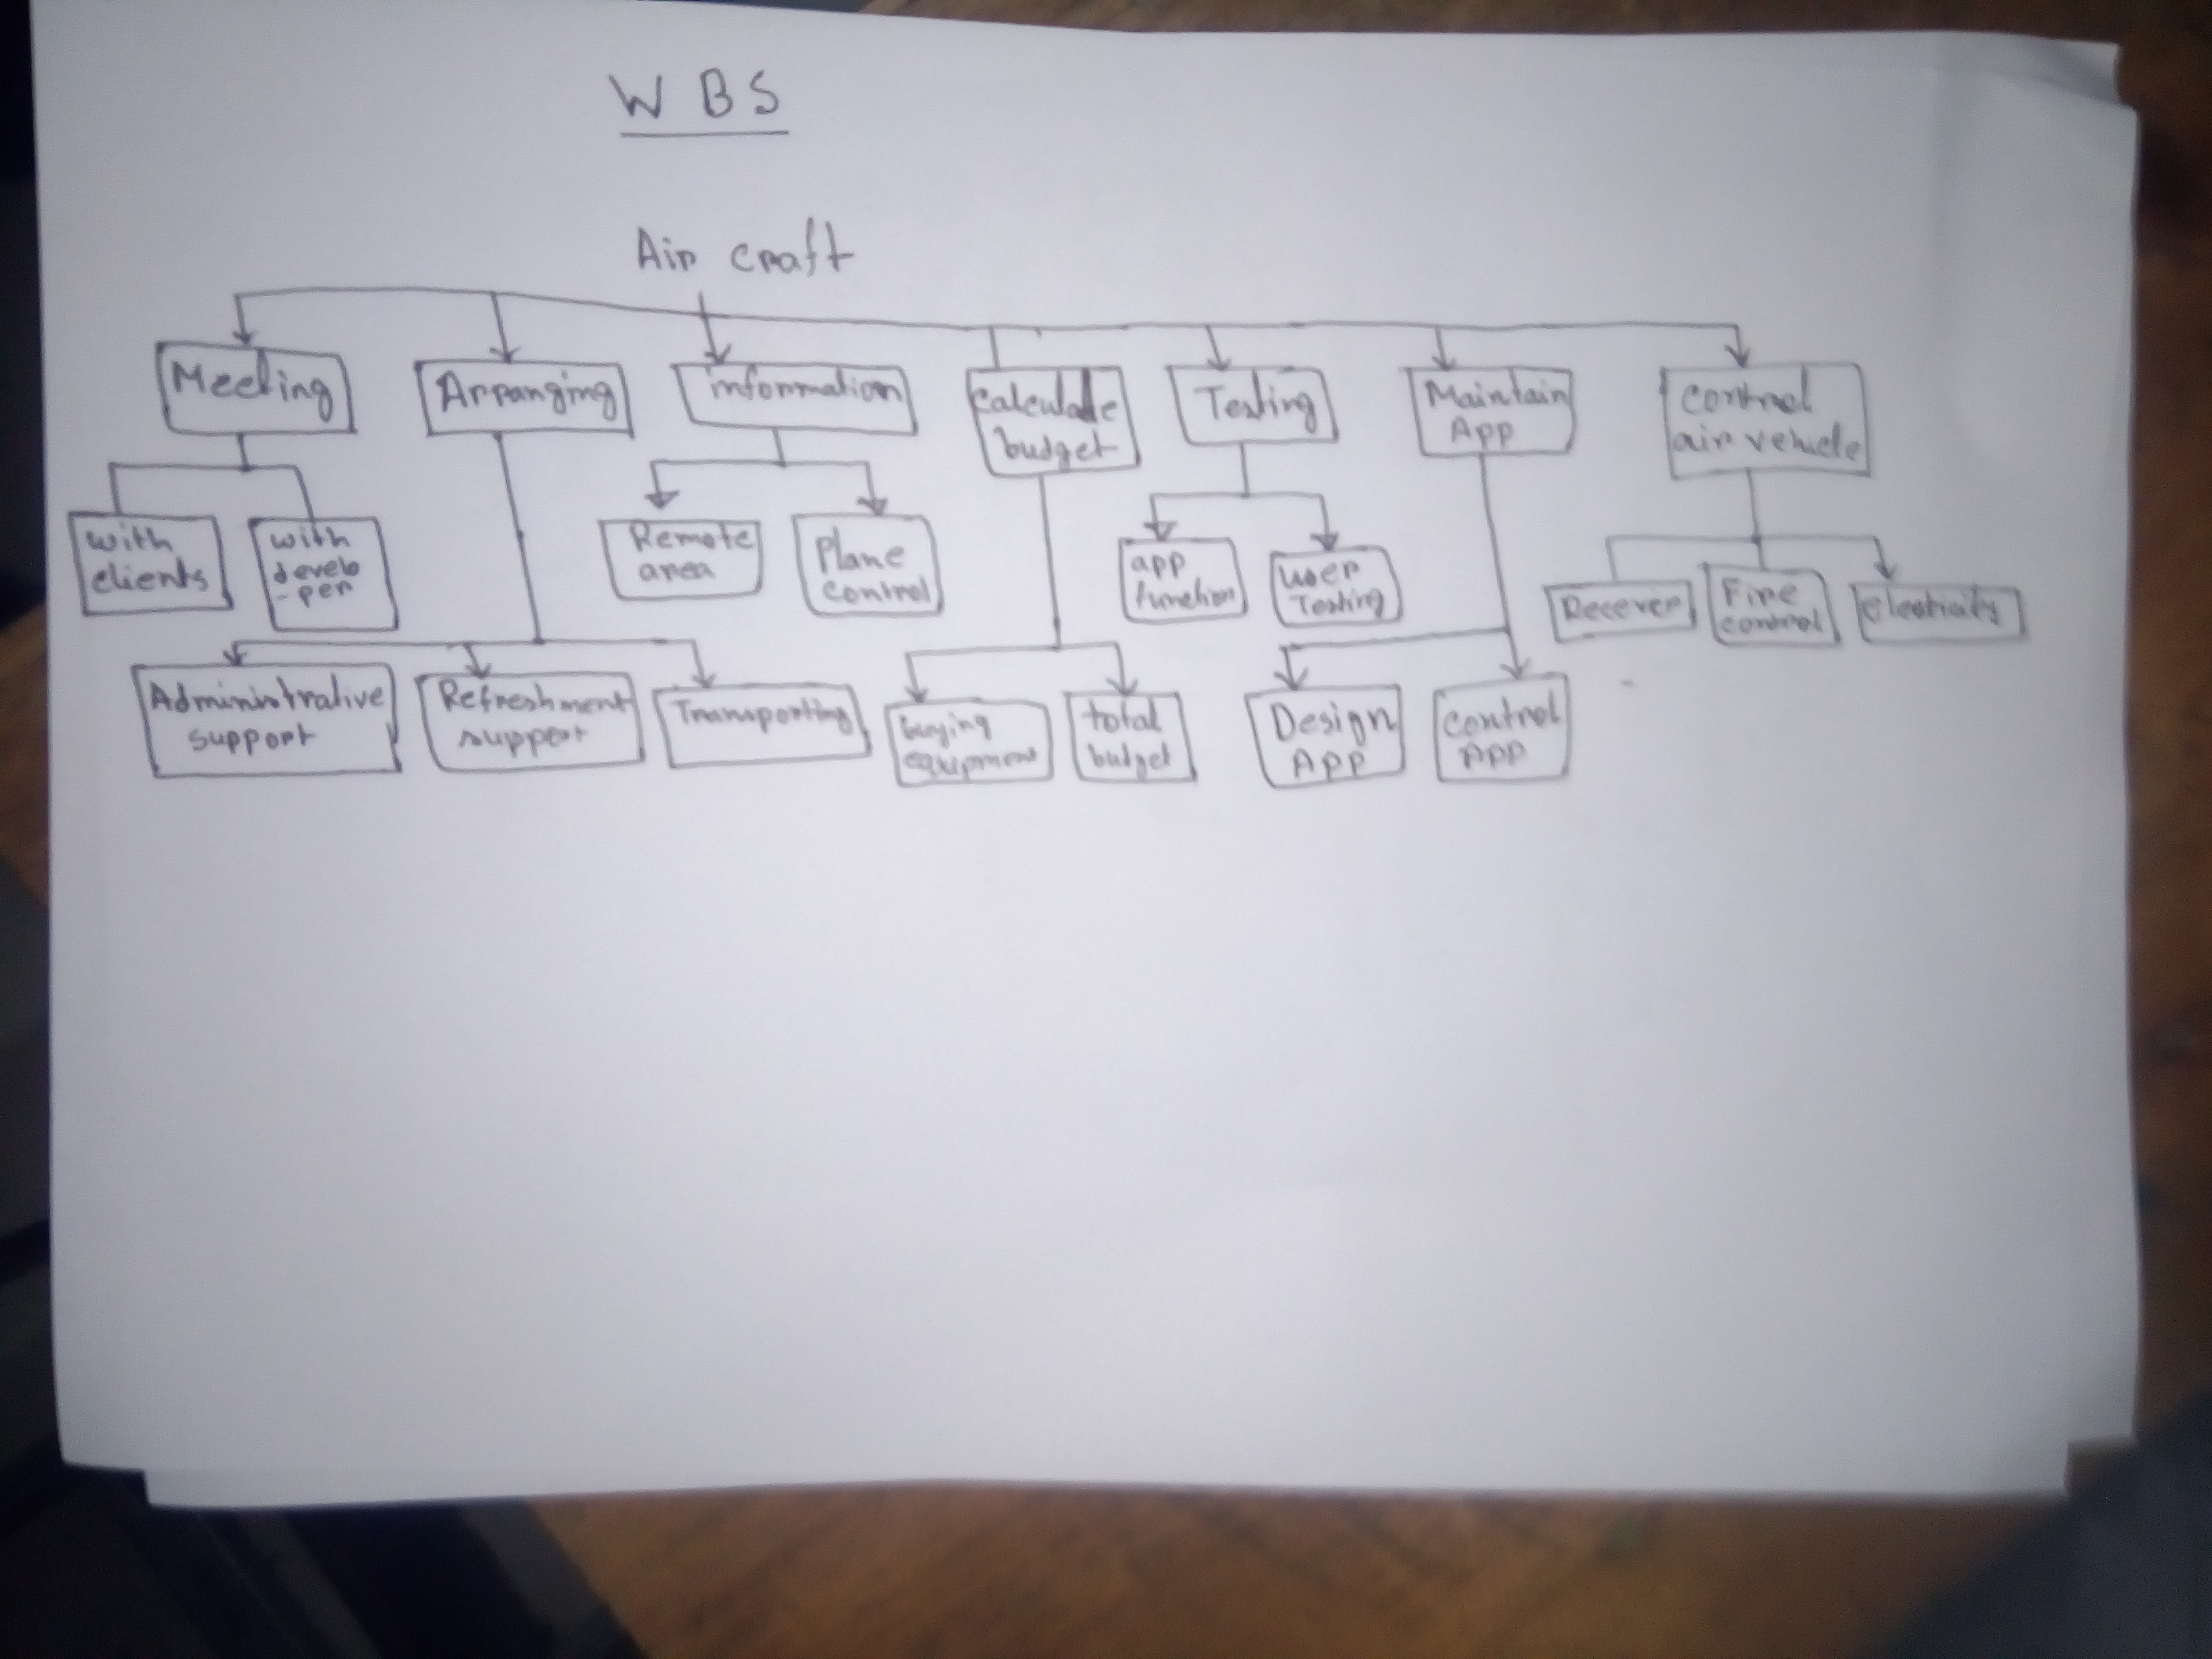 W B S
Air craft
Meeting
Arranging
information
calculate
budget
Testing
Maintain
App
control
air vehicle
with
clients
with
develo
-per
Remote
area
Plane
control
app
function
user
Testing
Recever
Fire
control
electricity
Administrative
support
Refreshment
support
Transporting
buying
equipment
total
budget
Design
App
control
App